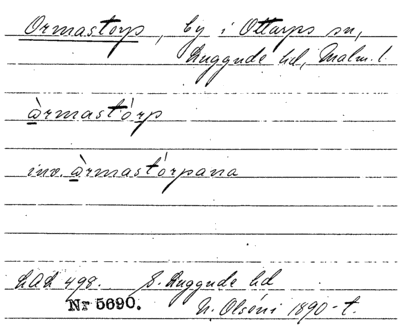 Ormastorp, by i Ottarps sn,
Ruggnde hd, Malm. l.
àrmastórp
inv. àrmastórpana
LAL 498. S. Ruggnde hd
Nr 5690. N. Olséni 1890-t.